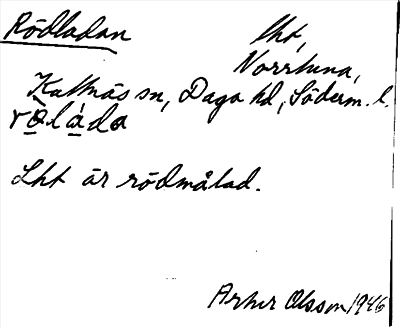 Rödladan
lht,
Norrtuna,
Kattnäs sn, Daga hd, Söderm. l.
rö̀láda
Lht är rödmålad.
Artur Olsson 1946